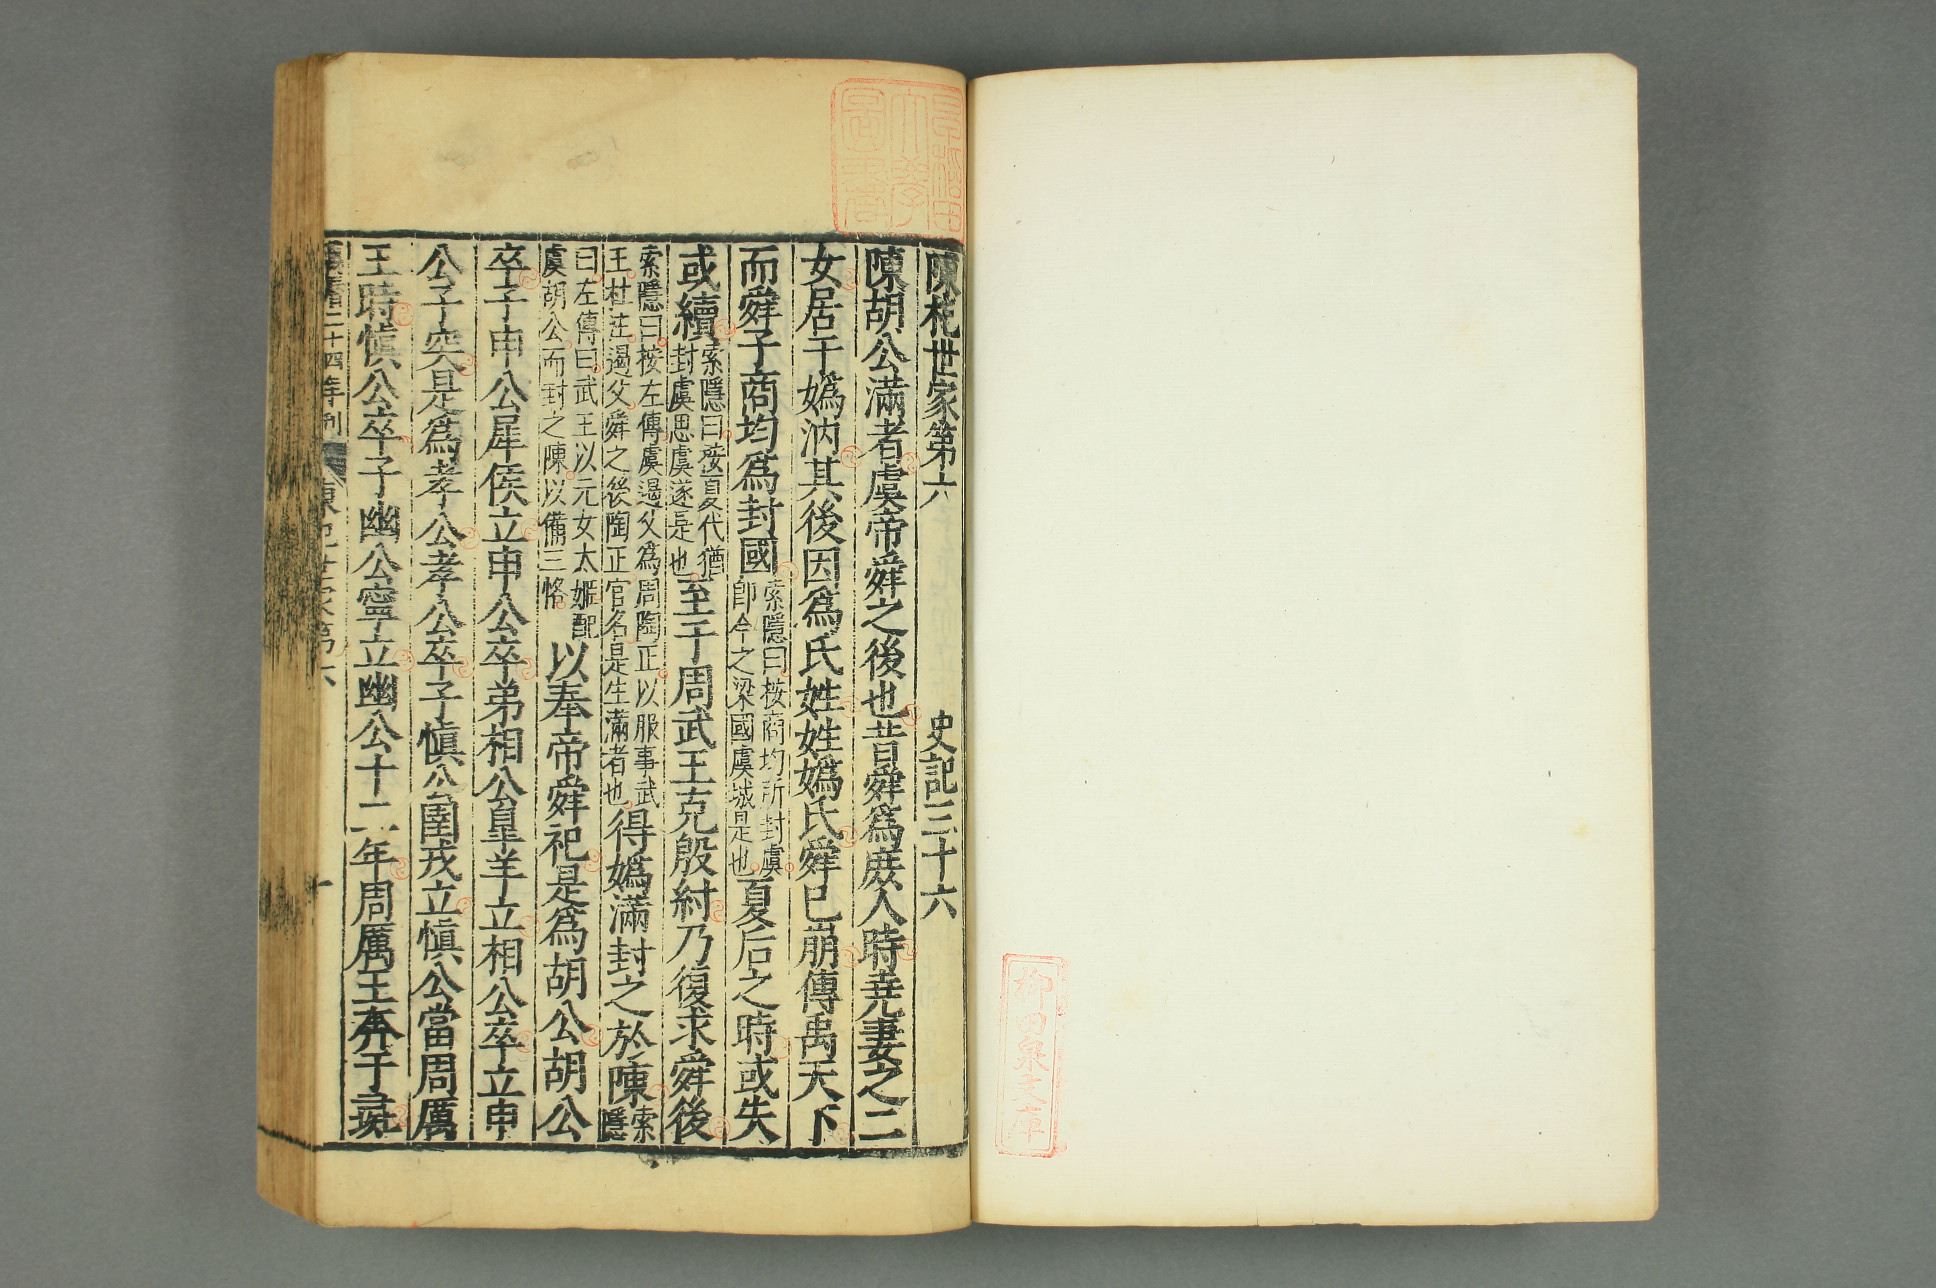 柳田泉文庫
早稻田
大學
圖書
陳杞世家第六 史記三十六
陳胡公滿者虞帝舜之後也昔舜爲庶人時堯妻之二
女居于嬀汭其後因爲氏姓姓嬀氏舜已崩傳禹天下
而舜子商均爲封國索隱曰按商均所封虞即今之梁國虞城是也夏后之時或失
或續索隱曰按夏代猶封虞思虞遂是也至于周武王克殷紂乃復求舜後
索隱曰按左傳虞遏父爲周陶正以服事武王杜注遏父舜之後陶正官名是生滿者也得嬀滿封之於陳索隱
曰左傳曰武王以元女太姬配虞胡公而封之陳以備三恪以奉帝舜祀是爲胡公胡公
卒子申公犀侯立申公卒弟相公皐羊立相公卒立申
公子突是爲孝公孝公卒子慎公圉戎立慎公當周厲
王時慎公卒子幽公寧立幽公十二年周厲王奔于彘